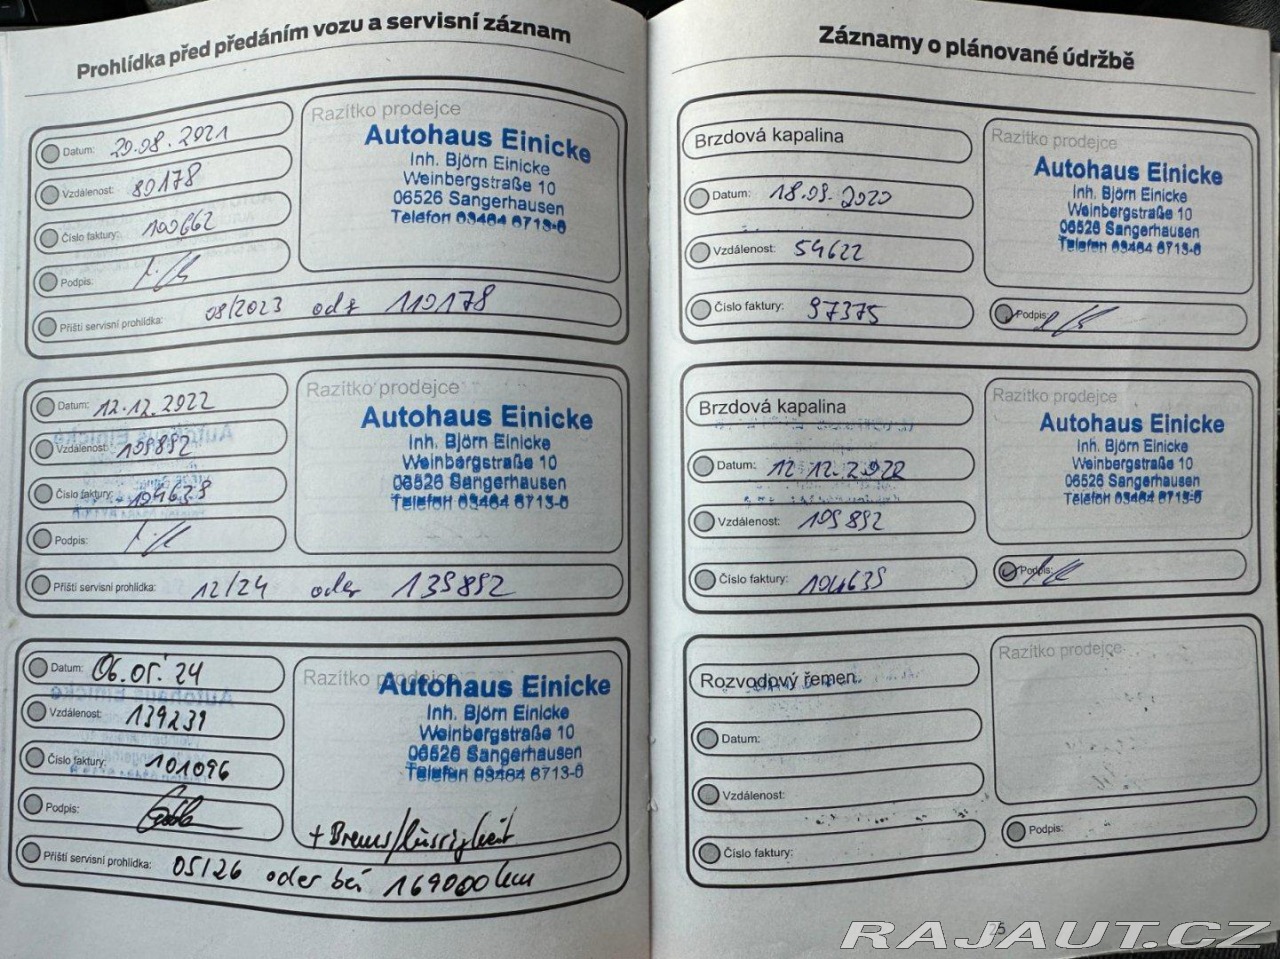 Prohlídka před předáním vozu a servisní záznam
Datum: 20.08.2021
Vzdálenost: 80178
Číslo faktury: 100662
Podpis:
Příští servisní prohlídka: 08/2023 od 110178
Razítko prodejce
Autohaus Einicke
Inh. Björn Einicke
Weinbergstraße 10
06526 Sangerhausen
Telefon 03464 5713-0
Datum: 12.12.2022
Vzdálenost: 109892
Číslo faktury: 104639
Podpis:
Příští servisní prohlídka: 12/24 oder 139892
Razítko prodejce
Autohaus Einicke
Inh. Björn Einicke
Weinbergstraße 10
06526 Sangerhausen
Telefon 03464 5713-0
Datum: 06.05.24
Vzdálenost: 139239
Číslo faktury: 101096
Podpis:
Razítko prodejce
Autohaus Einicke
Inh. Björn Einicke
Weinbergstraße 10
06526 Sangerhausen
Telefon 03464 5713-0
+ Bremsflüssigkeit
Příští servisní prohlídka: 05/26 oder bei 169000 km
Záznamy o plánované údržbě
Brzdová kapalina
Datum: 18.09.2020
Vzdálenost: 54622
Číslo faktury: 97375
Razítko prodejce
Autohaus Einicke
Inh. Björn Einicke
Weinbergstraße 10
06526 Sangerhausen
Telefon 03464 5713-0
Podpis:
Brzdová kapalina
Datum: 12.12.2022
Vzdálenost: 109892
Číslo faktury: 104639
Razítko prodejce
Autohaus Einicke
Inh. Björn Einicke
Weinbergstraße 10
06526 Sangerhausen
Telefon 03464 5713-0
Podpis:
Rozvodový řemen
Datum:
Vzdálenost:
Číslo faktury:
Razítko prodejce
Podpis:
25
RAJAUT.CZ